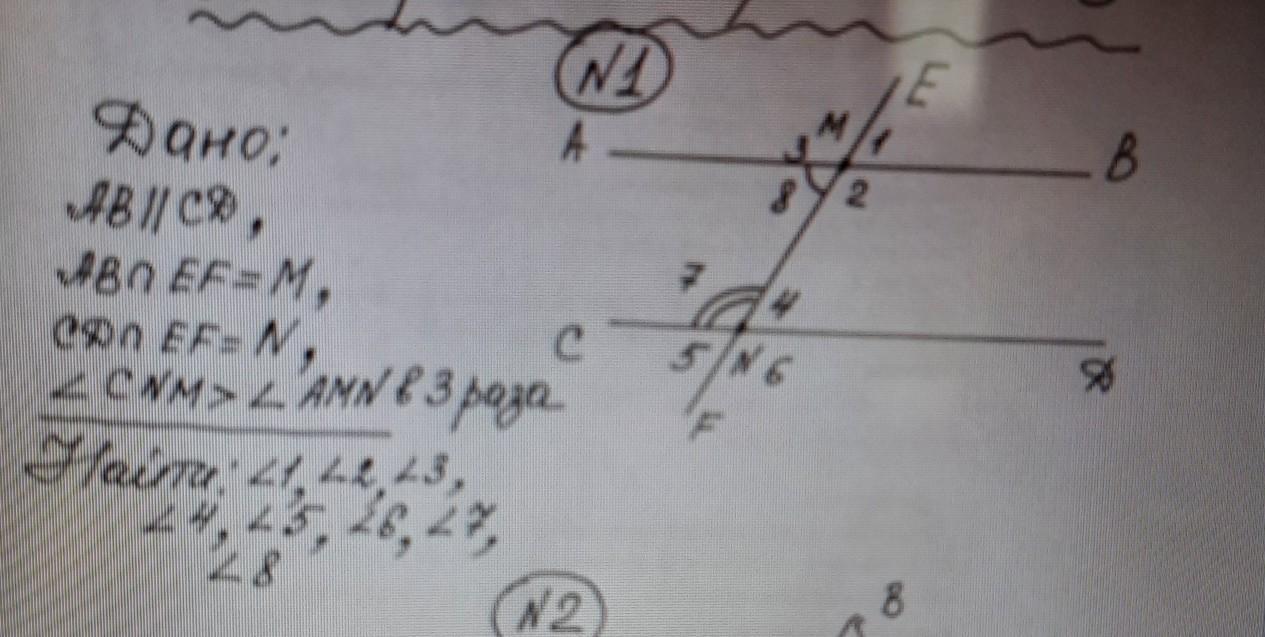 N1
Дано:
AB || CD,
AB ∩ EF = M,
CD ∩ EF = N,
∠CNM > ∠AMN в 3 раза
Найти: ∠1, ∠2, ∠3,
∠4, ∠5, ∠6, ∠7,
∠8
E
A 3 M 1 B
8 2
7 4
C 5 N 6 D
F
N2
B